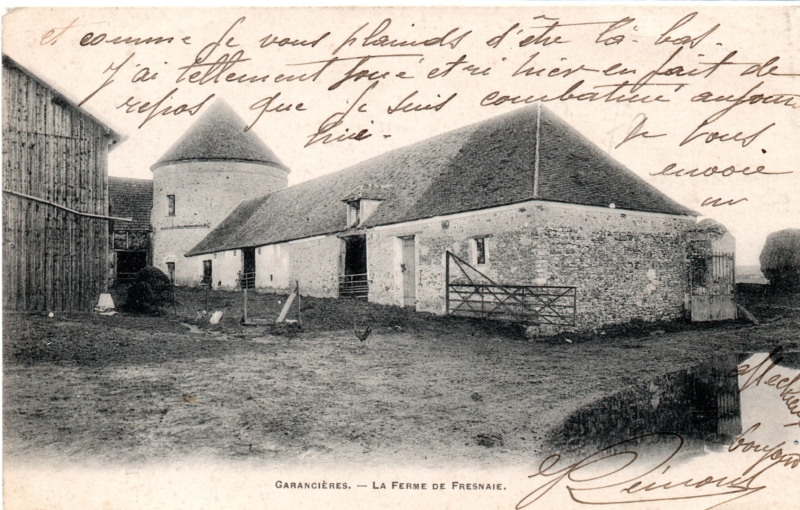 et comme je vous plainds d'être là-bas.
J'ai tellement joué et ri hier en fait de
repos que je suis courbaturé aujour
hui.
Je vous
envoie
un
affectueux
bonjour
Rémont
GARANCIÈRES. — LA FERME DE FRESNAIE.